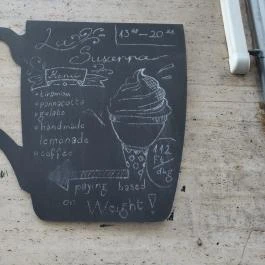 La
Susanna
13⁰⁰-20⁰⁰
Menu
• tiramisu
• pannacotta
• gelato
• handmade
lemonade
• coffee
112
Ft/
dkg
paying based
on Weight!